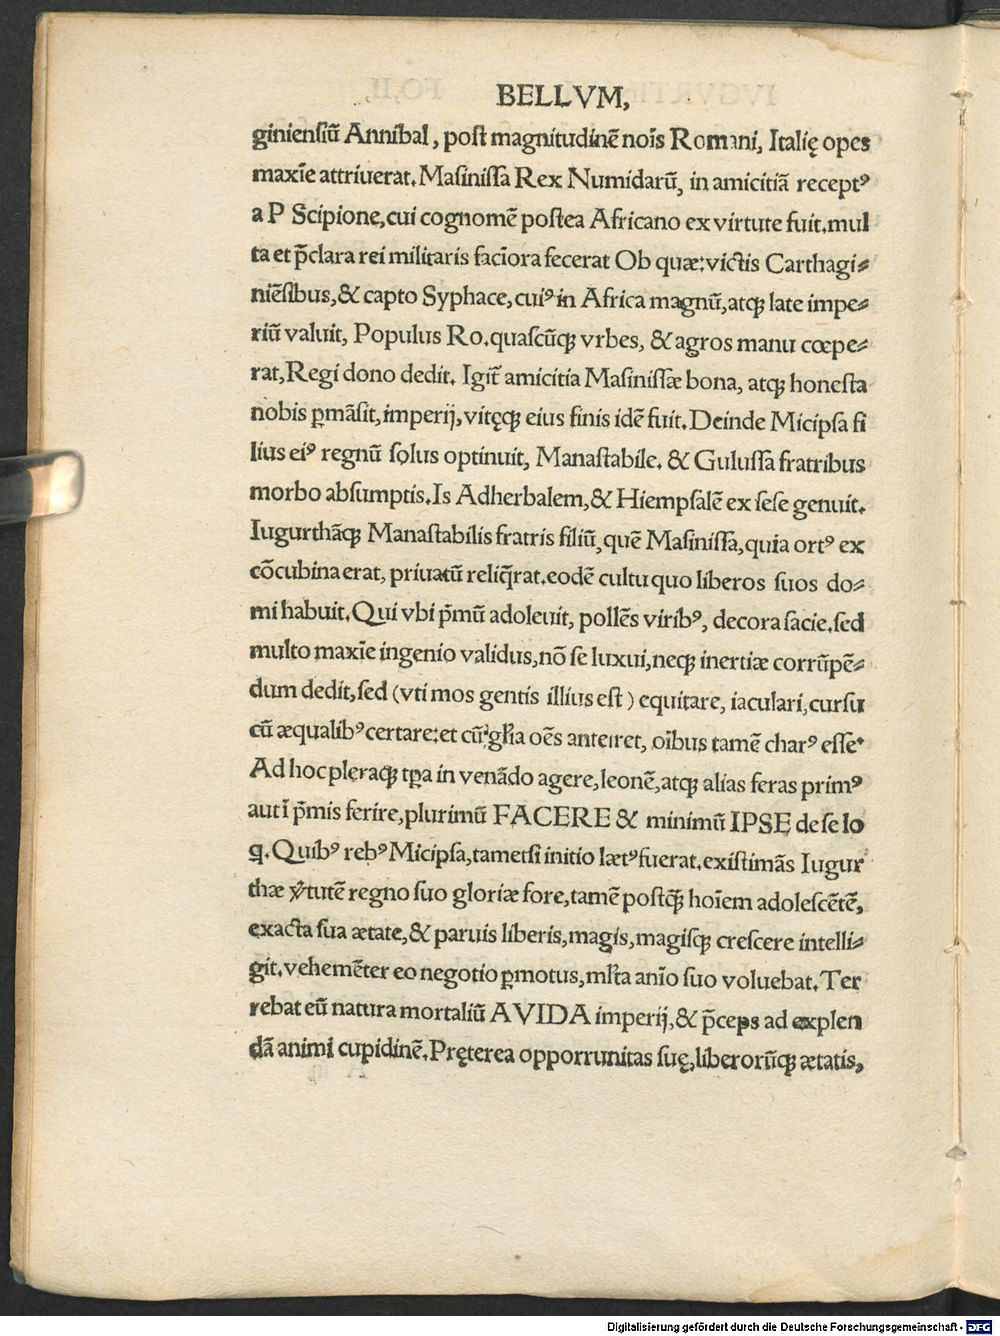 BELLVM,
giniensiũ Annibal, post magnitudinẽ nois̃ Romani, Italię opes
maxĩe attriuerat. Masinissa Rex Numidarũ, in amicitiã receptꝰ
a P Scipione, cui cognomẽ postea Africano ex virtute fuit. mul
ta et p̃clara rei militaris faciõra fecerat Ob quæ: victis Carthagi⸗
niẽsibus, & capto Syphace, cuiꝰ in Africa magnũ, atqꝫ late impe⸗
riũ valuit, Populus Ro. quascũqꝫ vrbes, & agros manu cœpe⸗
rat, Regi dono dedit. Igit̃ amicitia Masinissæ bona, atqꝫ honesta
nobis ꝑmãsit, imperij, vitęqꝫ eius finis idẽ fuit. Deinde Micipsa fi
lius eiꝰ regnũ solus optinuit, Manastabile. & Gulussa fratribus
morbo absumptis. Is Adherbalem, & Hiempsalẽ ex sese genuit.
Iugurthãqꝫ Manastabilis fratris filiũ, quẽ Masinissa, quia ortꝰ ex
cõcubina erat, priuatũ reliq̃rat. eodẽ cultu quo liberos suos do⸗
mi habuit. Qui vbi p̃mũ adoleuit, pollẽs viribꝰ, decora facie. sed
multo maxĩe ingenio validus, nõ se luxui, neqꝫ inertiæ corrũpẽ⸗
dum dedit, sed (vti mos gentis illius est) equitare, iaculari, cursu
cũ æqualibꝰ certare: et cũ gl̃ia oẽs anteiret, oĩbus tamẽ charꝰ esse.
Ad hoc pleraqꝫ tp̃a in venãdo agere, leonẽ, atqꝫ alias feras primꝰ
aut ĩ p̃mis ferire, plurimũ FACERE & minimũ IPSE de se lo
q̃. Quibꝰ rebꝰ Micipsa, tametsi initio lætꝰ fuerat. existimãs Iugur
thæ v̾tutẽ regno suo gloriæ fore, tamẽ postq̃ꝫ hoĩem adolescẽtẽ,
exacta sua ætate, & paruis liberis, magis, magisqꝫ crescere intelli⸗
git. vehemẽter eo negotio ꝑmotus, ml̃ta anĩo suo voluebat. Ter
rebat eũ natura mortaliũ AVIDA imperij, & p̃ceps ad explen
dã animi cupidinẽ. Pręterea opporrunitas suę, liberorũqꝫ ætatis,
Digitalisierung gefördert durch die Deutsche Forschungsgemeinschaft - DFG